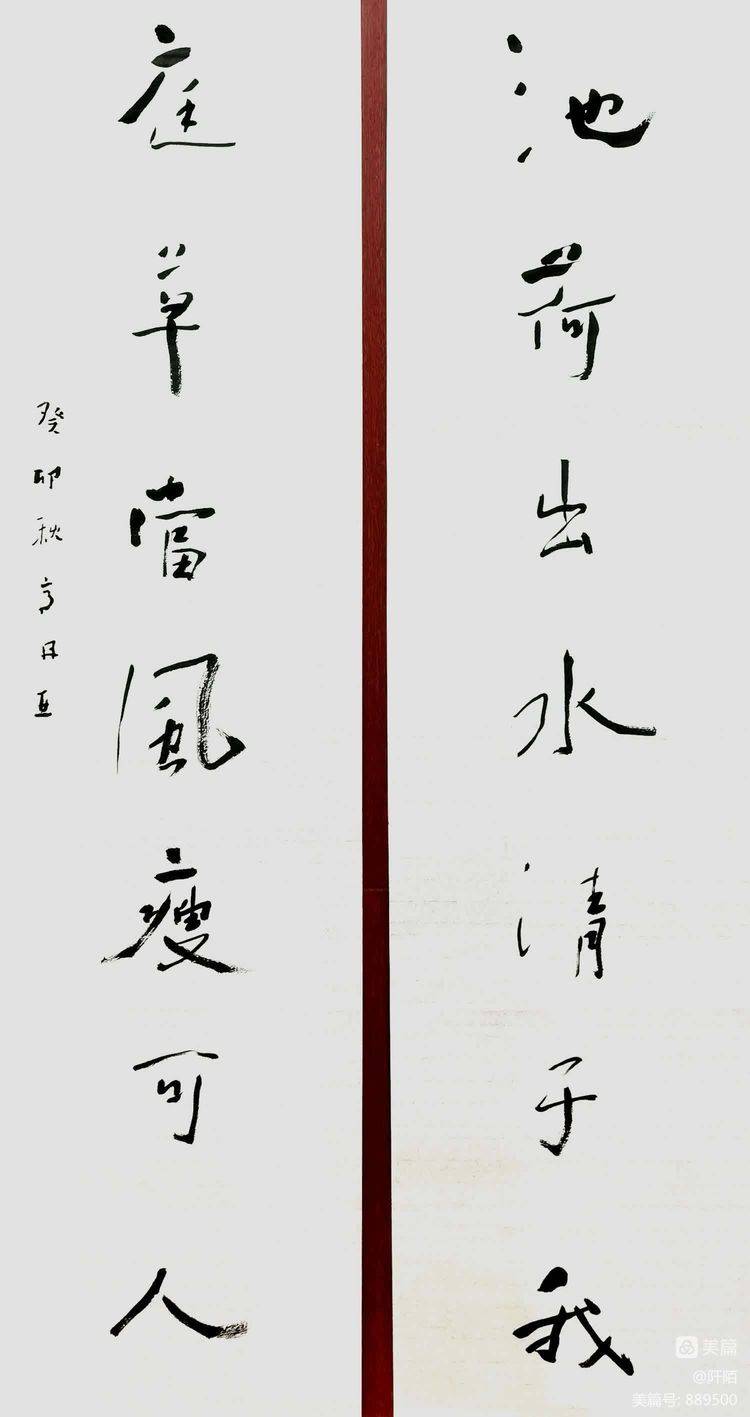 池荷出水清于我
庭草當風瘦可人
癸卯秋高日
美篇
@阡陌
美篇号: 889500